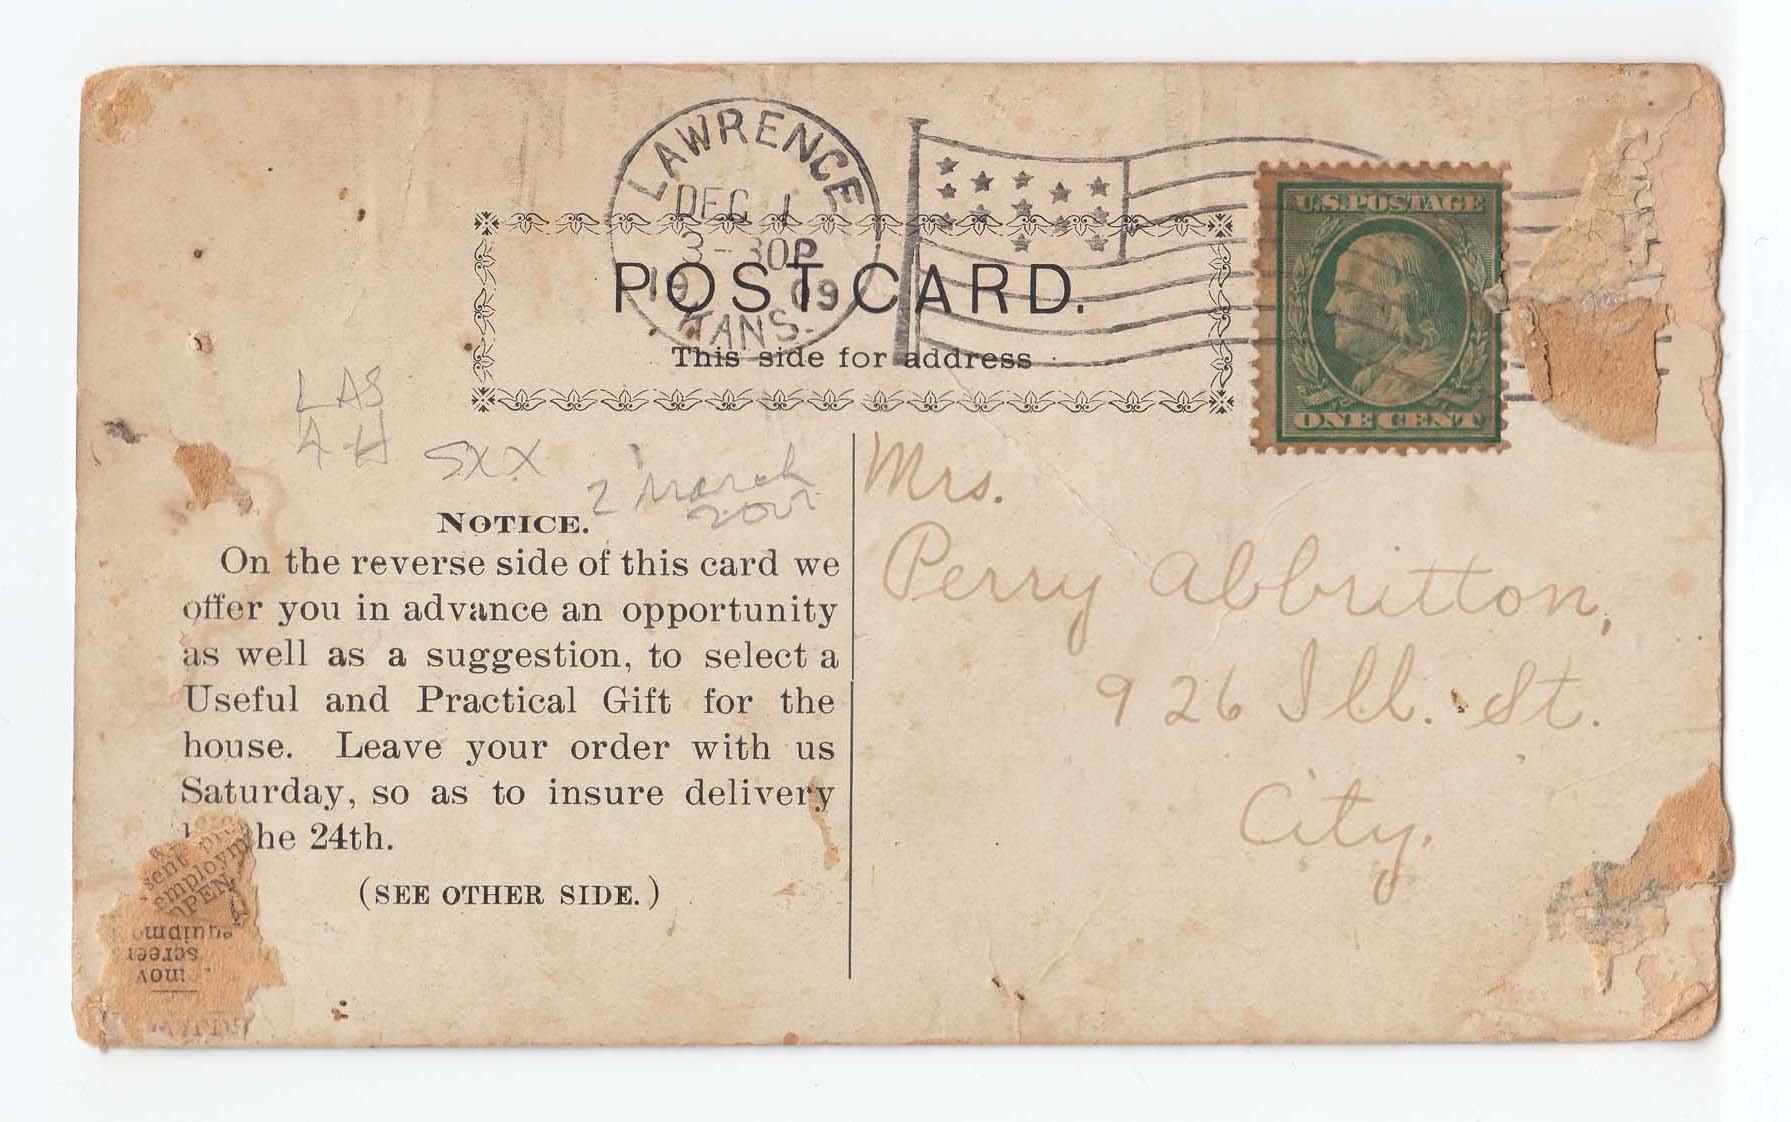 LAWRENCE
DEC 1
3-30P
19 09
KANS.
U.S. POSTAGE
ONE CENT
POST CARD.
This side for address
LAS
SXX
2 March
NOTICE.
On the reverse side of this card we
offer you in advance an opportunity
as well as a suggestion, to select a
Useful and Practical Gift for the
house. Leave your order with us
Saturday, so as to insure delivery
he 24th.
(SEE OTHER SIDE.)
Mrs.
Perry Abbritton,
926 Ill. St.
City.
sent
employm
OPEN